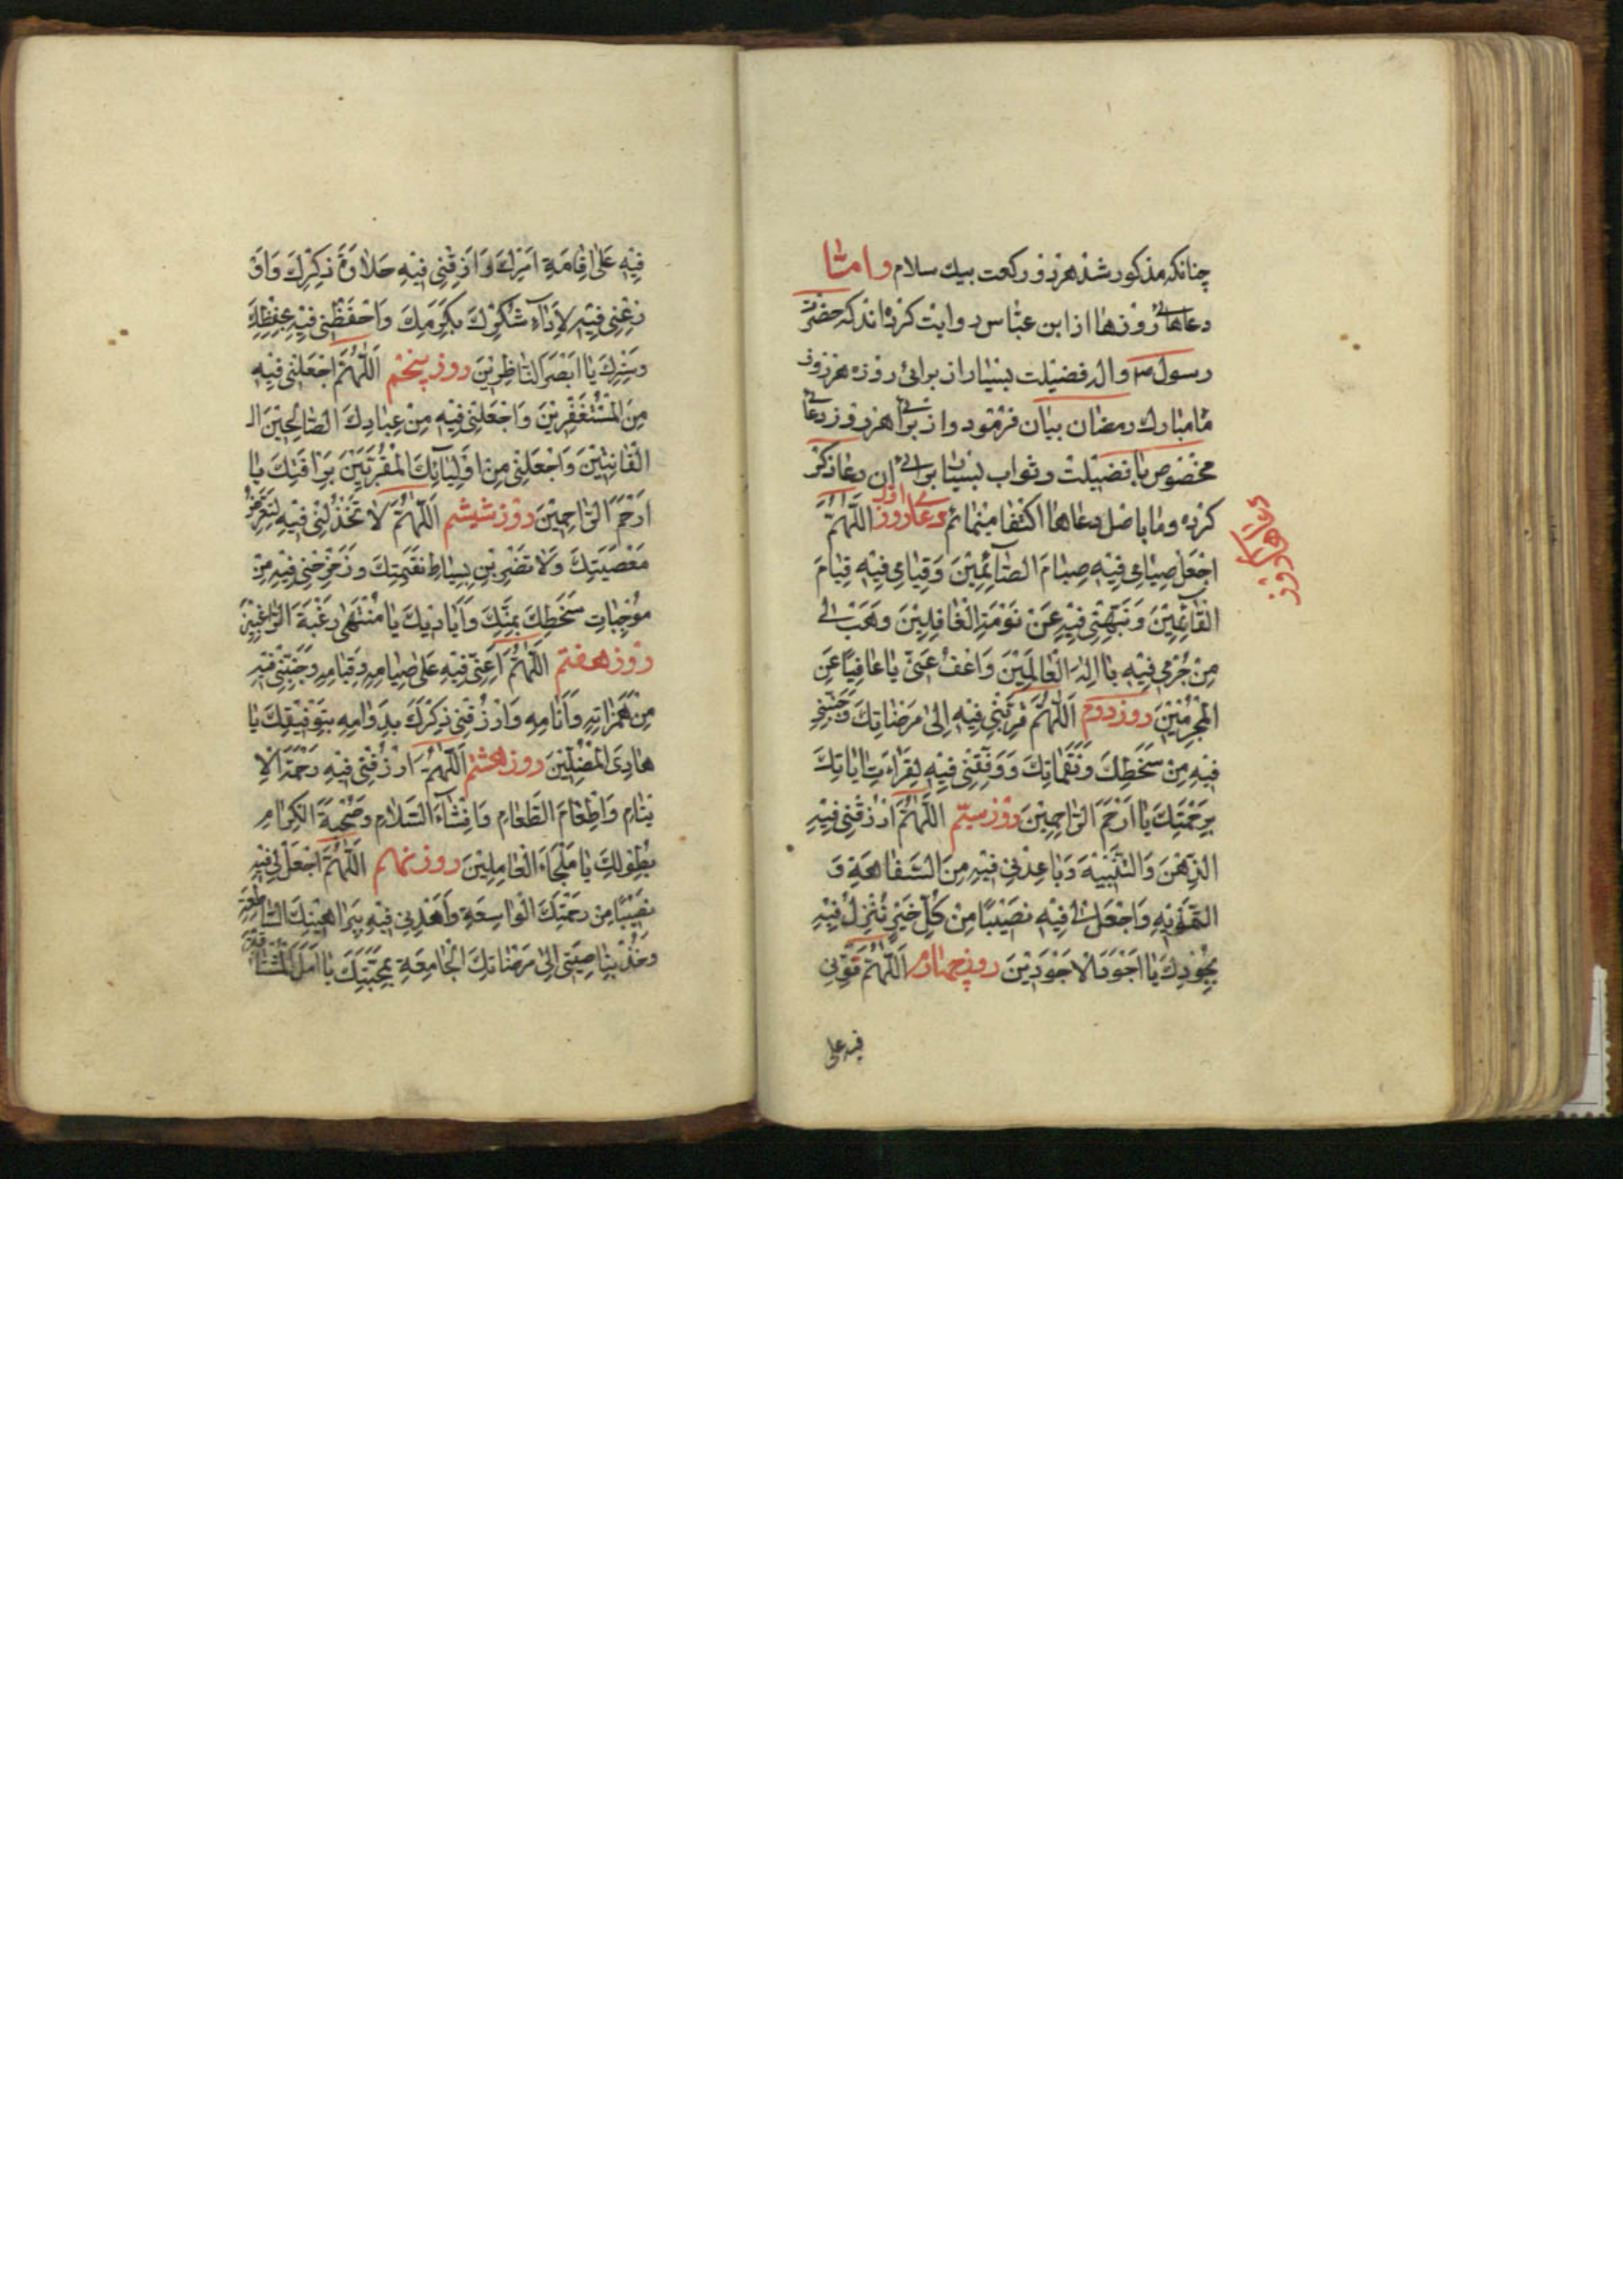 چنانکه مذکور شد هر دو رکعت بیك سلام و امّا
دعاهائے روزها از ابن عبّاس روایت کرده اند که حضرت
رسول ص واله فضیلت بسیار از برائے روزه هر روز
ماه مبارك رمضان بیان فرمود و از برائے هر روز دعائے
مخصوص با فضیلت و ثواب بسیار برائے ان دعا ذکر
کرده و ما باصل دعاها اکتفا مینمائم دعاء روز اول اَللّٰهُمَّ
دعاهاے روز
اجْعَلْ صِیٰامی فِیْهِ صِیٰامَ الصّٰائِمِیْنَ وَقِیٰامی فِیْهِ قِیٰامَ
الْقٰائِمِیْنَ وَنَبِّهْنِی فِیْهِ عَنْ نَوْمَةِ الْغٰافِلِیْنَ وَهَبْ لی
مِنْ جُرْمی فِیْهِ یٰا اِلٰهَ الْعٰالَمِیْنَ وَاعْفُ عَنّی یٰا عٰافِیًا عَنِ
الْمُجْرِمِیْنَ روز دوم اَللّٰهُمَّ قَرِّبْنِی فِیْهِ اِلیٰ مَرْضٰاتِكَ وَجَنِّبْنِی
فِیْهِ مِنْ سَخَطِكَ وَنَقِمٰاتِكَ وَوَفِّقْنِی فِیْهِ لِقِرٰاءَتِ اٰیٰاتِكَ
بِرَحْمَتِكَ یٰا اَرْحَمَ الرّٰاحِمِیْنَ روز سیّم اَللّٰهُمَّ ارْزُقْنِی فِیْهِ
الذِّهْنَ وَالتَّنْبِیْهَ وَبٰاعِدْنِی فِیْهِ مِنَ السَّفٰاهَةِ وَ
التَّمْوِیْهِ وَاجْعَلْ لی فِیْهِ نَصِیْبًا مِنْ کُلِّ خَیْرٍ تُنْزِلُ فِیْهِ
بِجُوْدِكَ یٰا اَجْوَدَ الاَجْوَدِیْنَ روز چهارم اَللّٰهُمَّ قَوِّنِی
فیه علی
فِیْهِ عَلیٰ اِقٰامَةِ اَمْرِكَ وَاَذِقْنِی فِیْهِ حَلٰاوَةَ ذِکْرِكَ وَاَوْ
زِعْنِی فِیْهِ لِاَدٰاءِ شُکْرِكَ بِکَرَمِكَ وَاحْفَظْنِی فِیْهِ بِحِفْظِكَ
وَسِتْرِكَ یٰا اَبْصَرَ النّٰاظِرِیْنَ روز پنجم اَللّٰهُمَّ اجْعَلْنِی فِیْهِ
مِنَ الْمُسْتَغْفِرِیْنَ وَاجْعَلْنِی فِیْهِ مِنْ عِبٰادِكَ الصّٰالِحِیْنَ الـ
الْقٰانِتِیْنَ وَاجْعَلْنِی مِنْ اَوْلِیٰائِكَ الْمُقَرَّبِیْنَ بِرَاْفَتِكَ یٰا
اَرْحَمَ الرّٰاحِمِیْنَ روز شیشم اَللّٰهُمَّ لاٰ تَخْذُلْنِی فِیْهِ لِتَعَرُّضِ
مَعْصِیَتِكَ وَلاٰ تَضْرِبْنِی بِسِیٰاطِ نَقِمَتِكَ وَزَحْزِحْنِی فِیْهِ مِنْ
مُوْجِبٰاتِ سَخَطِكَ بِمَنِّكَ وَاَیٰادِیْكَ یٰا مُنْتَهیٰ رَغْبَةَ الرّٰاغِبِیْنَ
روز هفتم اَللّٰهُمَّ اَعِنّی فِیْهِ عَلیٰ صِیٰامِهِ وَقِیٰامِهِ وَجَنِّبْنِی فِیْهِ
مِنْ هَمَزٰاتِهِ وَاٰثٰامِهِ وَارْزُقْنِی ذِکْرَكَ بِدَوٰامِهِ بِتَوْفِیْقِكَ یٰا
هٰادِیَ الْمُضِلِّیْنَ روز هشتم اَللّٰهُمَّ ارْزُقْنِی فِیْهِ رَحْمَةَ الاَ
یْتٰامِ وَاِطْعٰامَ الطَّعٰامِ وَاِفْشٰاءَ السَّلاٰمِ وَصُحْبَةَ الْکِرٰامِ
بِطَوْلِكَ یٰا مَلْجَاءَ الْعٰامِلِیْنَ روز نهم اَللّٰهُمَّ اجْعَلْ لی فِیْهِ
نَصِیْبًا مِنْ رَحْمَتِكَ الْوٰاسِعَةِ وَاهْدِنِی فِیْهِ بِبَرٰاهِیْنِكَ السّٰاطِعَةِ
وَخُذْ بِنٰاصِیَتِی اِلیٰ مَرْضٰاتِكَ الْجٰامِعَةِ بِمَحَبَّتِكَ یٰا اَمَلَ الْمُشْتٰاقِیْنَ